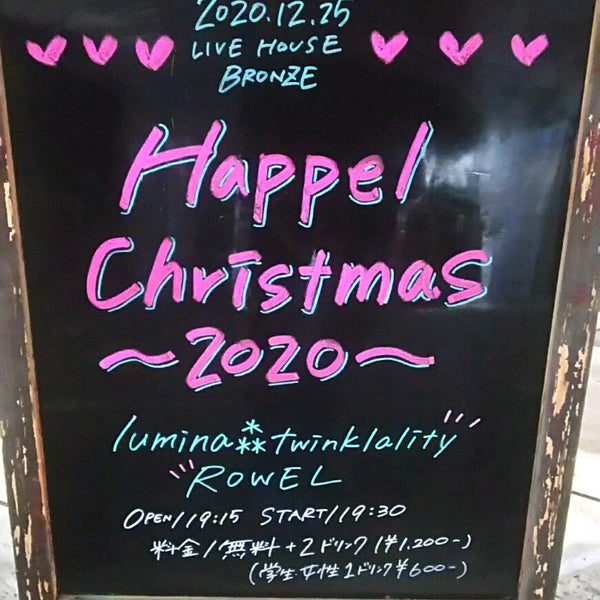 2020.12.25
LIVE HOUSE
BRONZE
Happel
Christmas
～2020～
lumina⁂twinklality
ROWEL
OPEN/19:15 START/19:30
料金/無料+2ドリンク(¥1,200-)
(学生・女性1ドリンク¥600-)